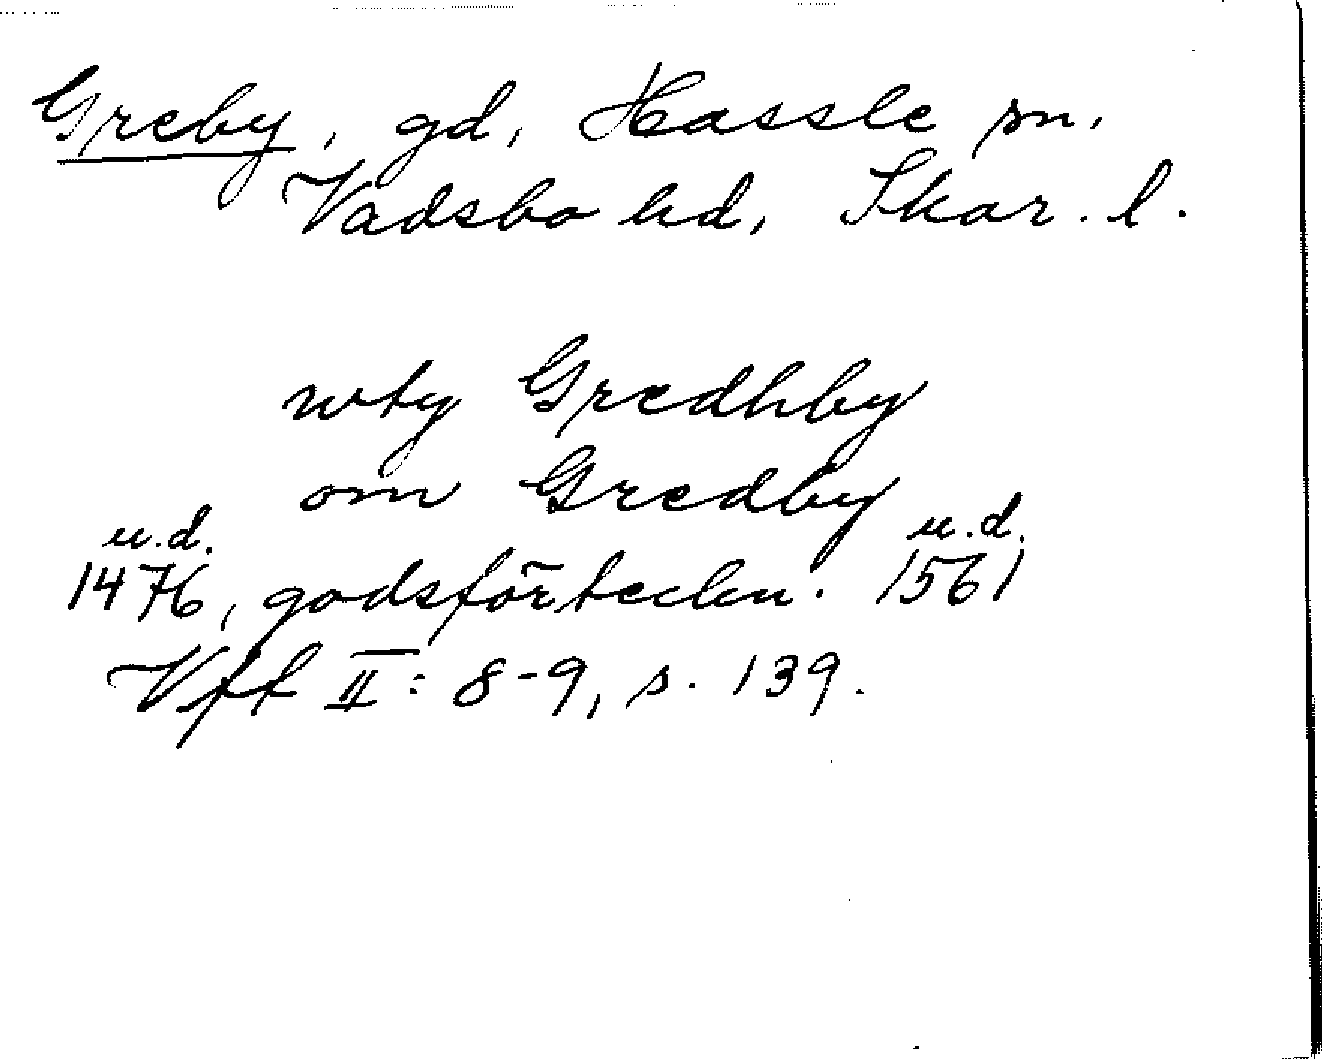 Greby, gd, Hassle sn,
Vadsbo hd, Skar. l.
wty Gredhby
om Gredby
u.d. u.d.
1476, godsförteckn. 1561
Vff II: 8-9, s. 139.